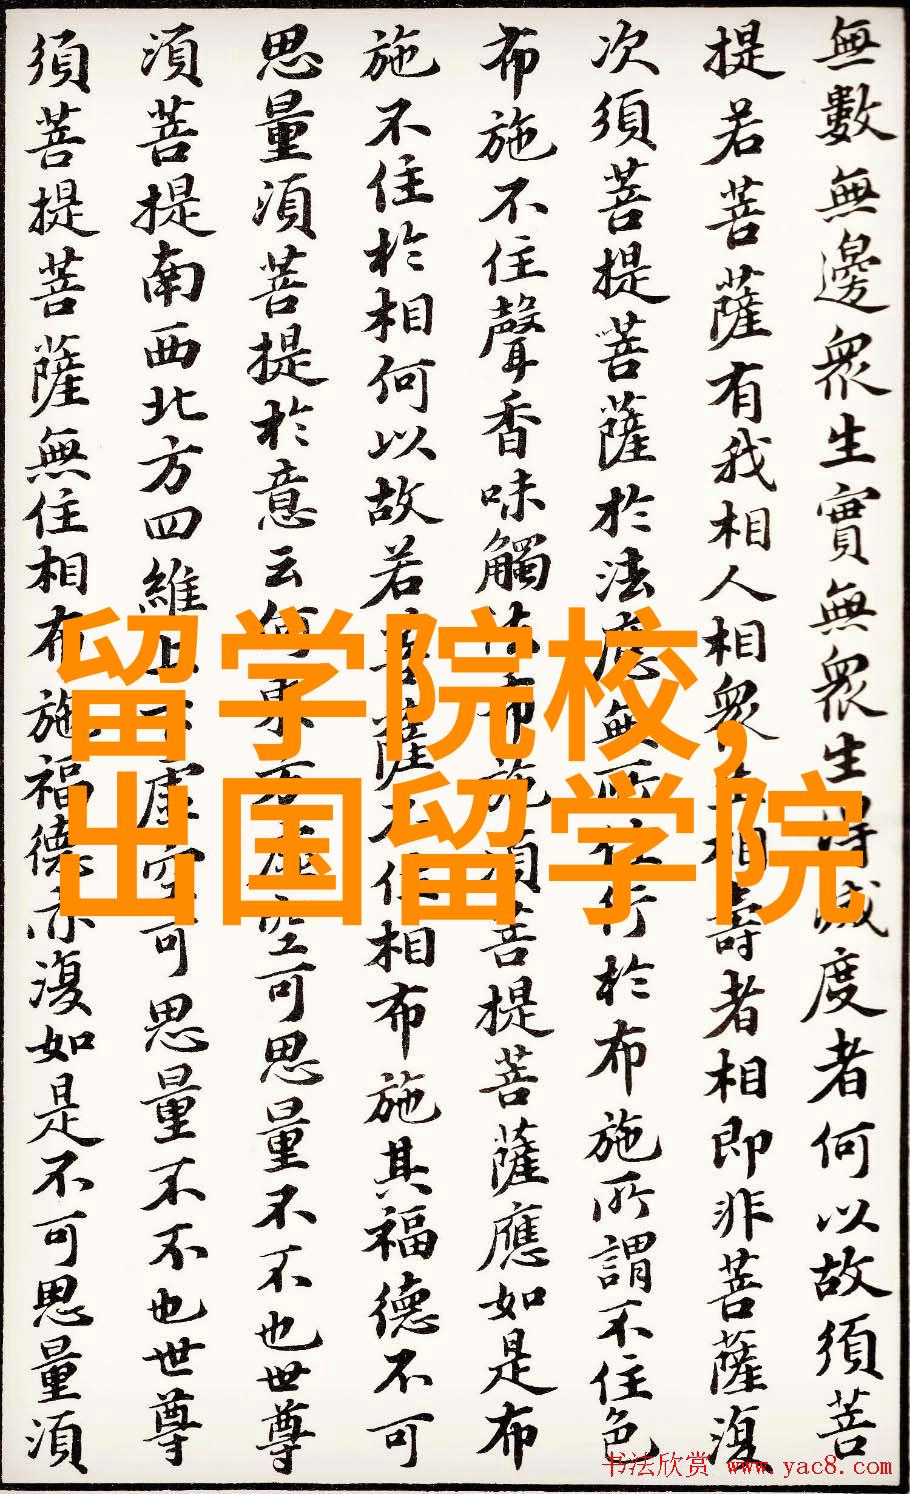 無數無邊眾生實無眾生得滅度者何以故須菩
提若菩薩有我相人相眾生相壽者相即非菩薩復
次須菩提菩薩於法應無所住行於布施所謂不住色
布施不住聲香味觸法布施須菩提菩薩應如是布
施不住於相何以故若菩薩不住相布施其福德不可
思量須菩提於意云何東方虛空可思量不不也世尊
須菩提南西北方四維上下虛空可思量不不也世尊
須菩提菩薩無住相布施福德亦復如是不可思量須
留学院校,
出国留学院
书法欣赏 www.yac8.com